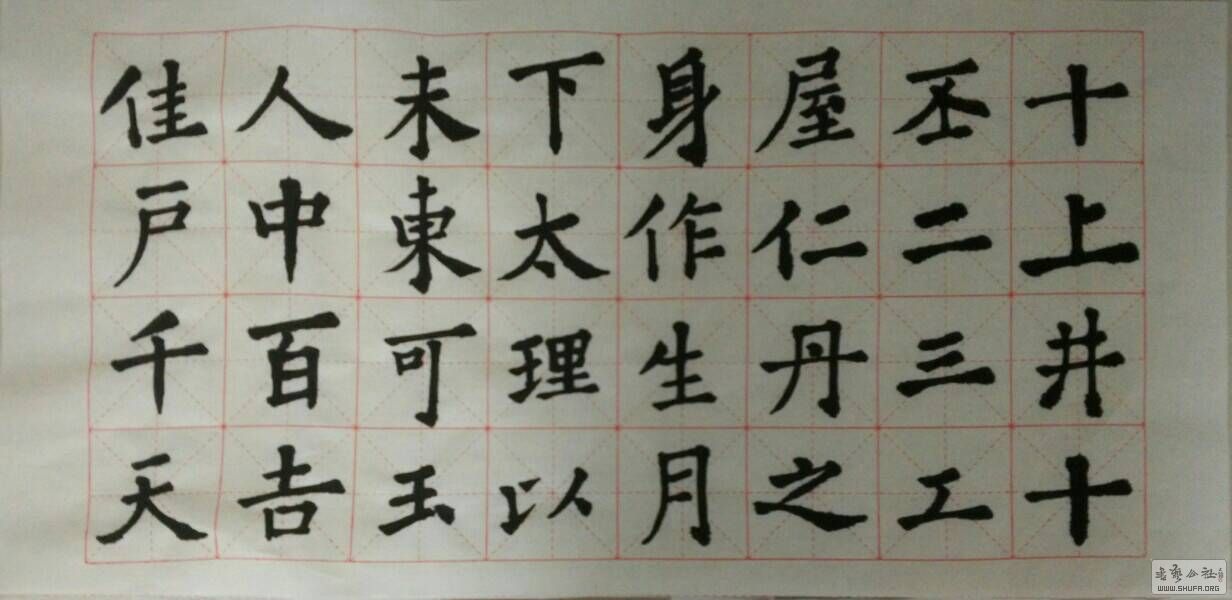 十上井十
丕二三工
屋仁丹之
身作生月
下太理以
未東可玉
人中百吉
佳戸千天
WWW.SHUFA.ORG